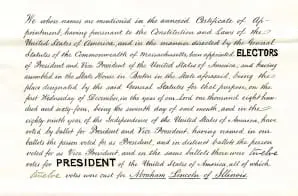 We whose names are mentioned in the annexed Certificate of Ap-
pointment, having pursuant to the Constitution and Laws of the
United States of America, and in the manner directed by the General
Statutes of the Commonwealth of Massachusetts, been appointed ELECTORS
of President and Vice President of the United States of America, and having
assembled in the State House in Boston in the State aforesaid, being the
place designated by the said General Statutes for that purpose, on the
first Wednesday of December, in the year of our Lord one thousand eight hun-
dred and sixty-four, being the seventh day of said month, and in the
eighty-ninth year of the Independence of the United States of America, have
voted by ballot for President and Vice President, having named in our
ballots the person voted for as President, and in distinct ballots the person
voted for as Vice President, and in the same ballots there were twelve
votes for PRESIDENT of the United States of America, all of which
twelve votes were cast for Abraham Lincoln of Illinois.